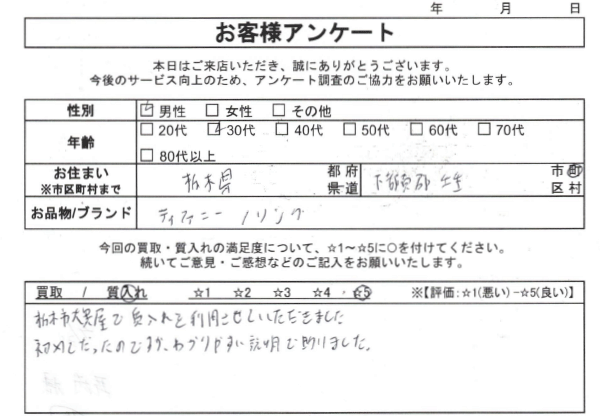 年 月 日
お客様アンケート
本日はご来店いただき、誠にありがとうございます。
今後のサービス向上のため、アンケート調査のご協力をお願いいたします。
性別 ☑ 男性 □ 女性 □ その他
年齢 □ 20代 ☑ 30代 □ 40代 □ 50代 □ 60代 □ 70代
□ 80代以上
お住まい 栃木県 都 府 下都賀郡 壬生 市 町
※市区町村まで 県 道 区 村
お品物/ブランド ティファニー / リング
今回の買取・質入れの満足度について、☆1～☆5に○を付けてください。
続いてご意見・ご感想などのご記入をお願いいたします。
買取 / 質入れ ☆1 ☆2 ☆3 ☆4 ☆5 ※【評価:☆1(悪い)−☆5(良い)】
栃木市大黒屋で質入れを利用させていただきました
初めてだったのですが、わかりやすい説明で助りました。